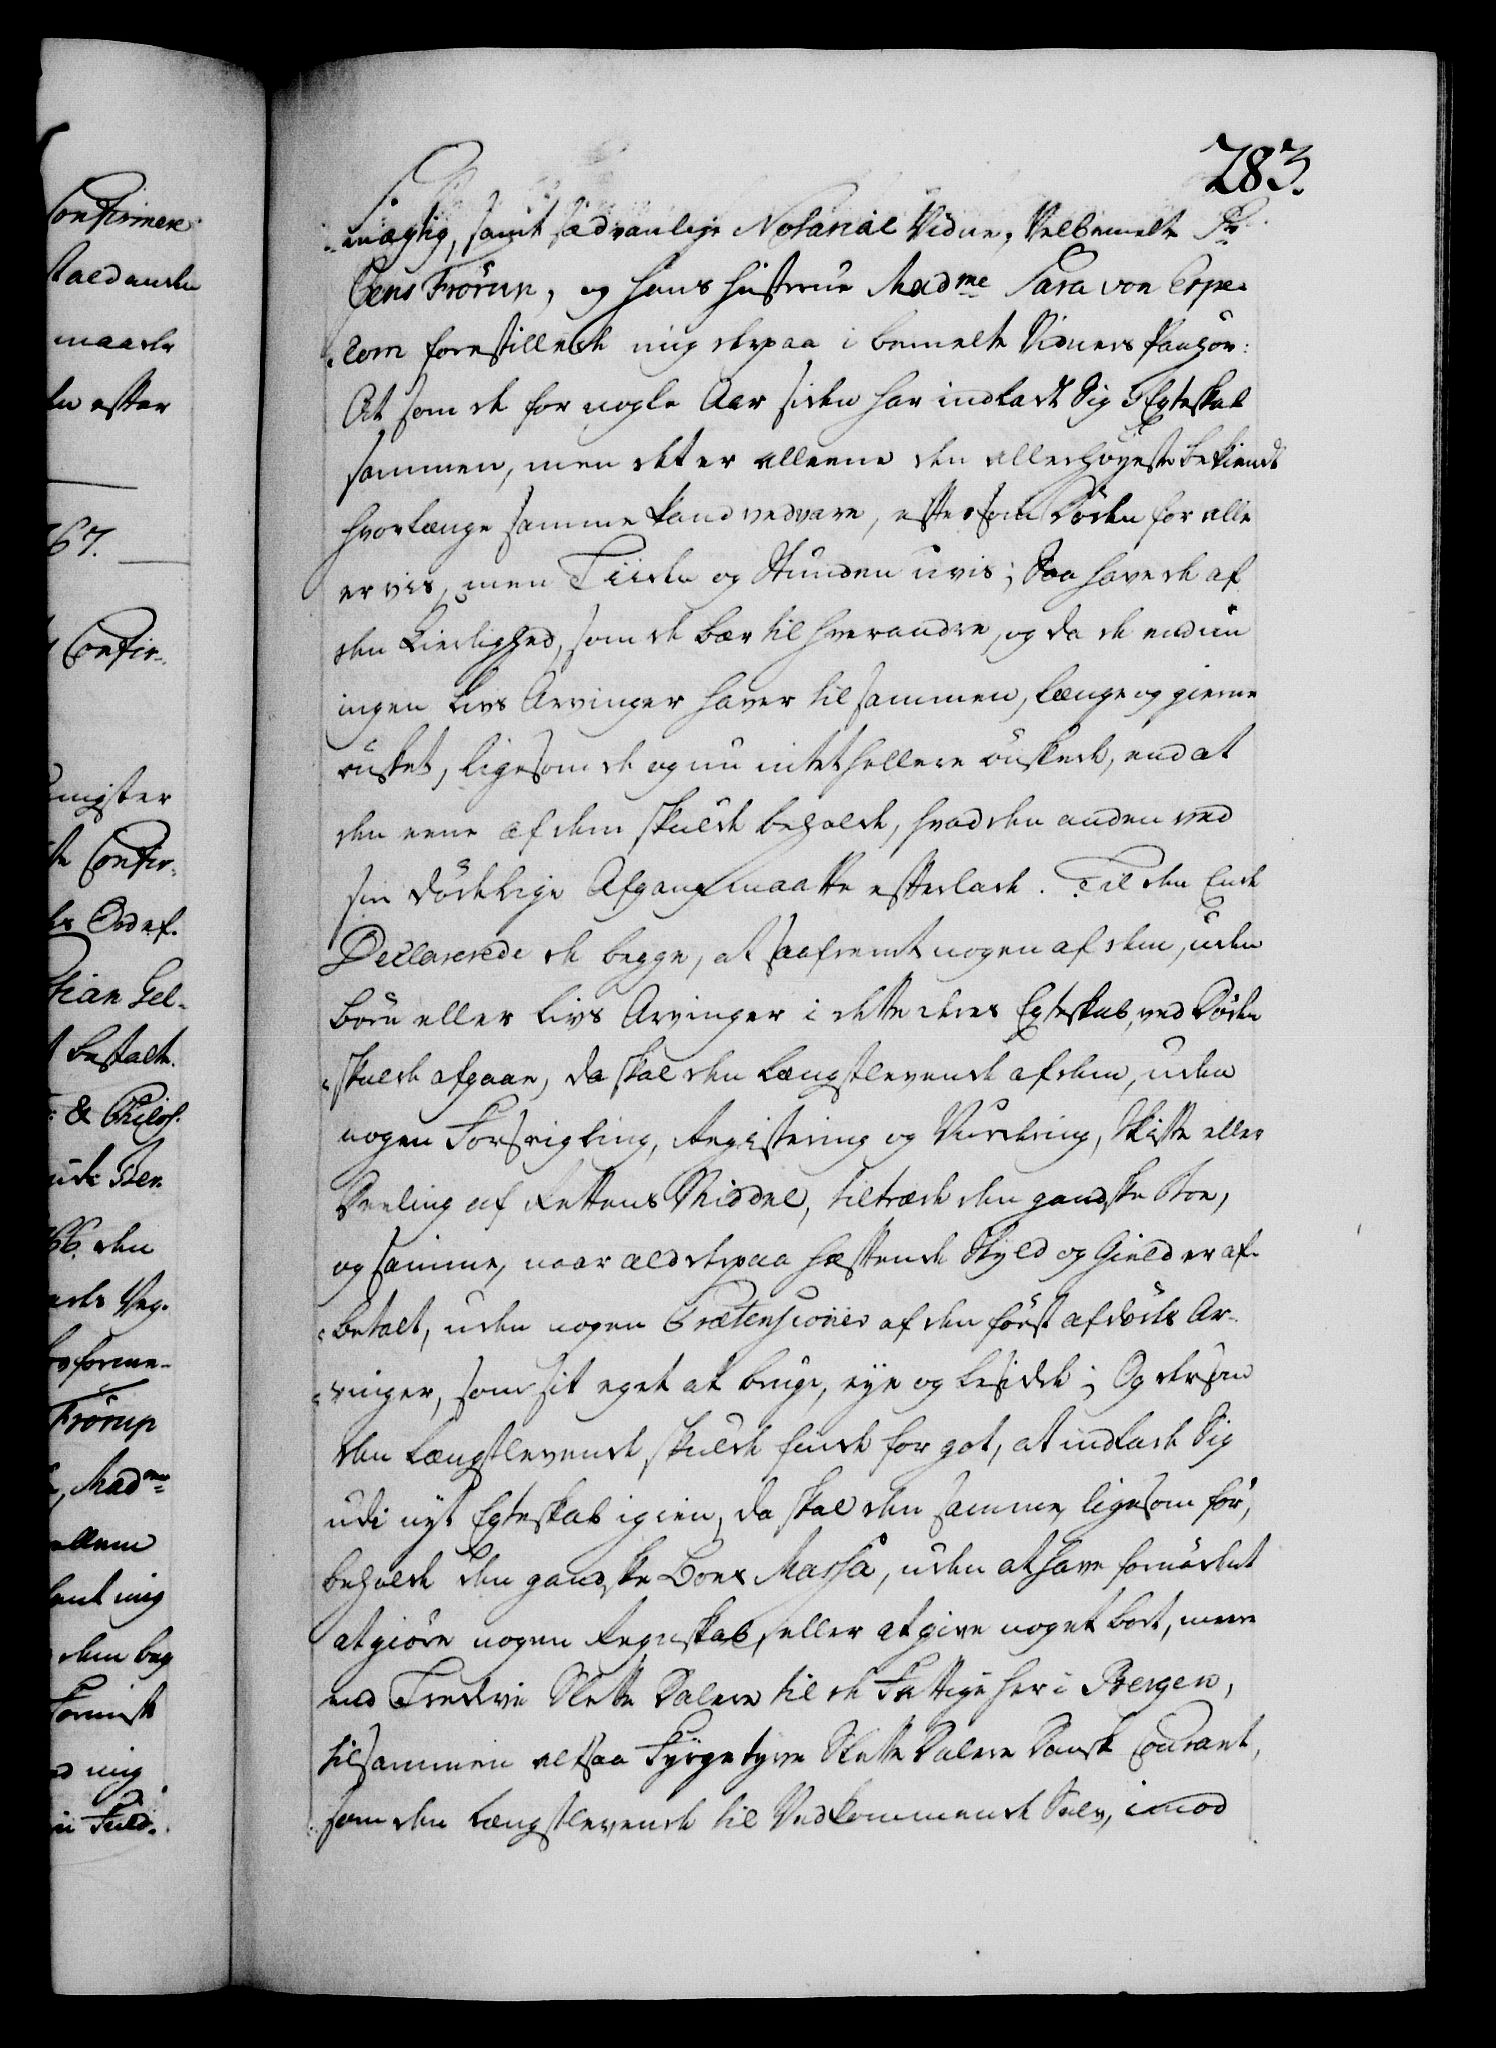 283.
mægtig, samt sædvanlige Notarial Vidne, Velbemelte Sr.
Jens Frörup, og Hans Hustrue Madme Sara von Erpe-
com forestillede mig derpaa i bemelte Vidners Paahör:
At som de for nogle Aar siden har indladt Sig i Egteskab
sammen, men det er alleene den allerhöyeste bekiendt
hvorlænge samme kand vedvare, eftersom Döden for alle
er vis, men Tiiden og Stunden uvis; Saa have de af
den Kierlighed, som de bær til hverandre, og da de endnu
ingen Livs Arvinger haver tilsammen, længe og gierne
önsket, ligesom de og nu intet hellere önskede, end at
den eene af dem skulde beholde, hvad den anden ved
sin dödelige Afgang maatte efterlade. Til den Ende
Declarerede de begge, at saafremt nogen af dem, uden
Börn eller Livs Arvinger i dette deres Egteskab, ved Döden
skulde afgaae, da skal den Længstlevende af dem, uden
nogen Forseigling, Registering og Vurdering, Skifte eller
Deeling af Rettens Middel, tiltræde den gandske Boe,
og samme, naar ald derpaa hæftende Skyld og Gield er af-
betalt, uden nogen Prætensioner af den först afdödes Ar-
vinger, som sit eget at bruge, eye og besidde; Og dersom
den Længstlevende skulde finde for got, at indlade Sig
udi nyt Egteskab igien, da skal den samme, ligesom för,
beholde den gandske Boes Massa, uden at have fornödent
at giöre nogen Regnskab, eller at give noget bort, meere
end Tredive Slette Dalere til de Fattige her i Bergen,
tilsammen altsaa Slette Dalere Dansk Courant,
som den Længstlevende til Vedkommende Selv, imod
Confirmere
maade
efter
67.
Confir-
Confir-
Ordes.
tian Gel-
bestalt.
& Philos.
66. den
Frörup
Mad me
ellem
mig
den beg
mig
Fuld-